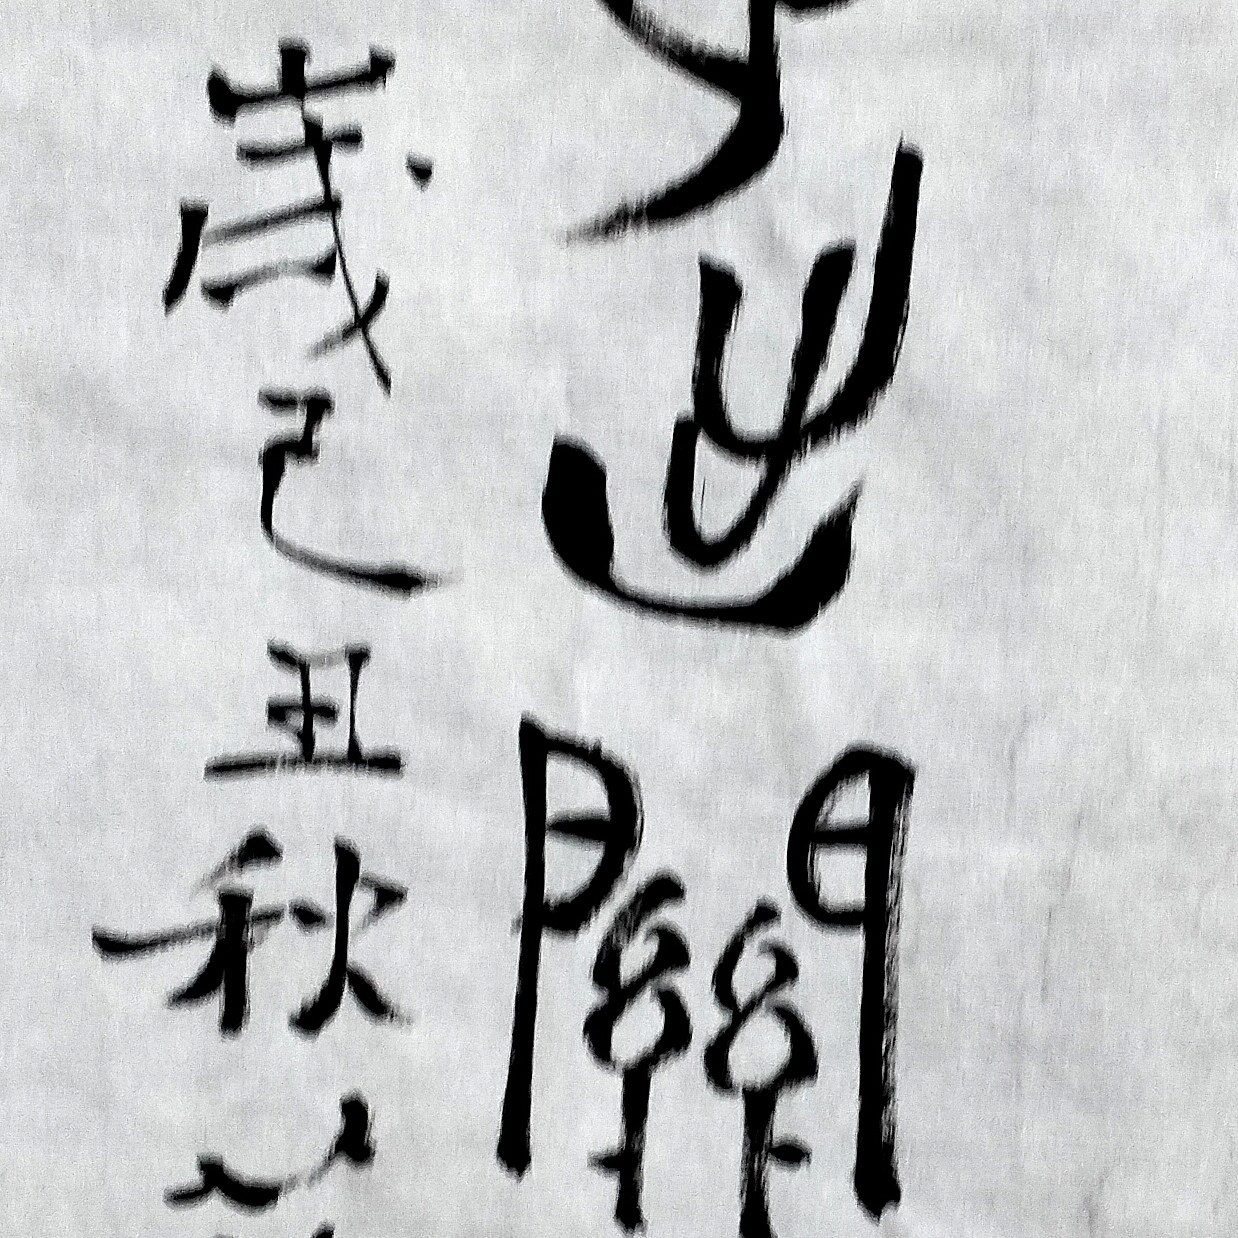 出關
歲己丑秋